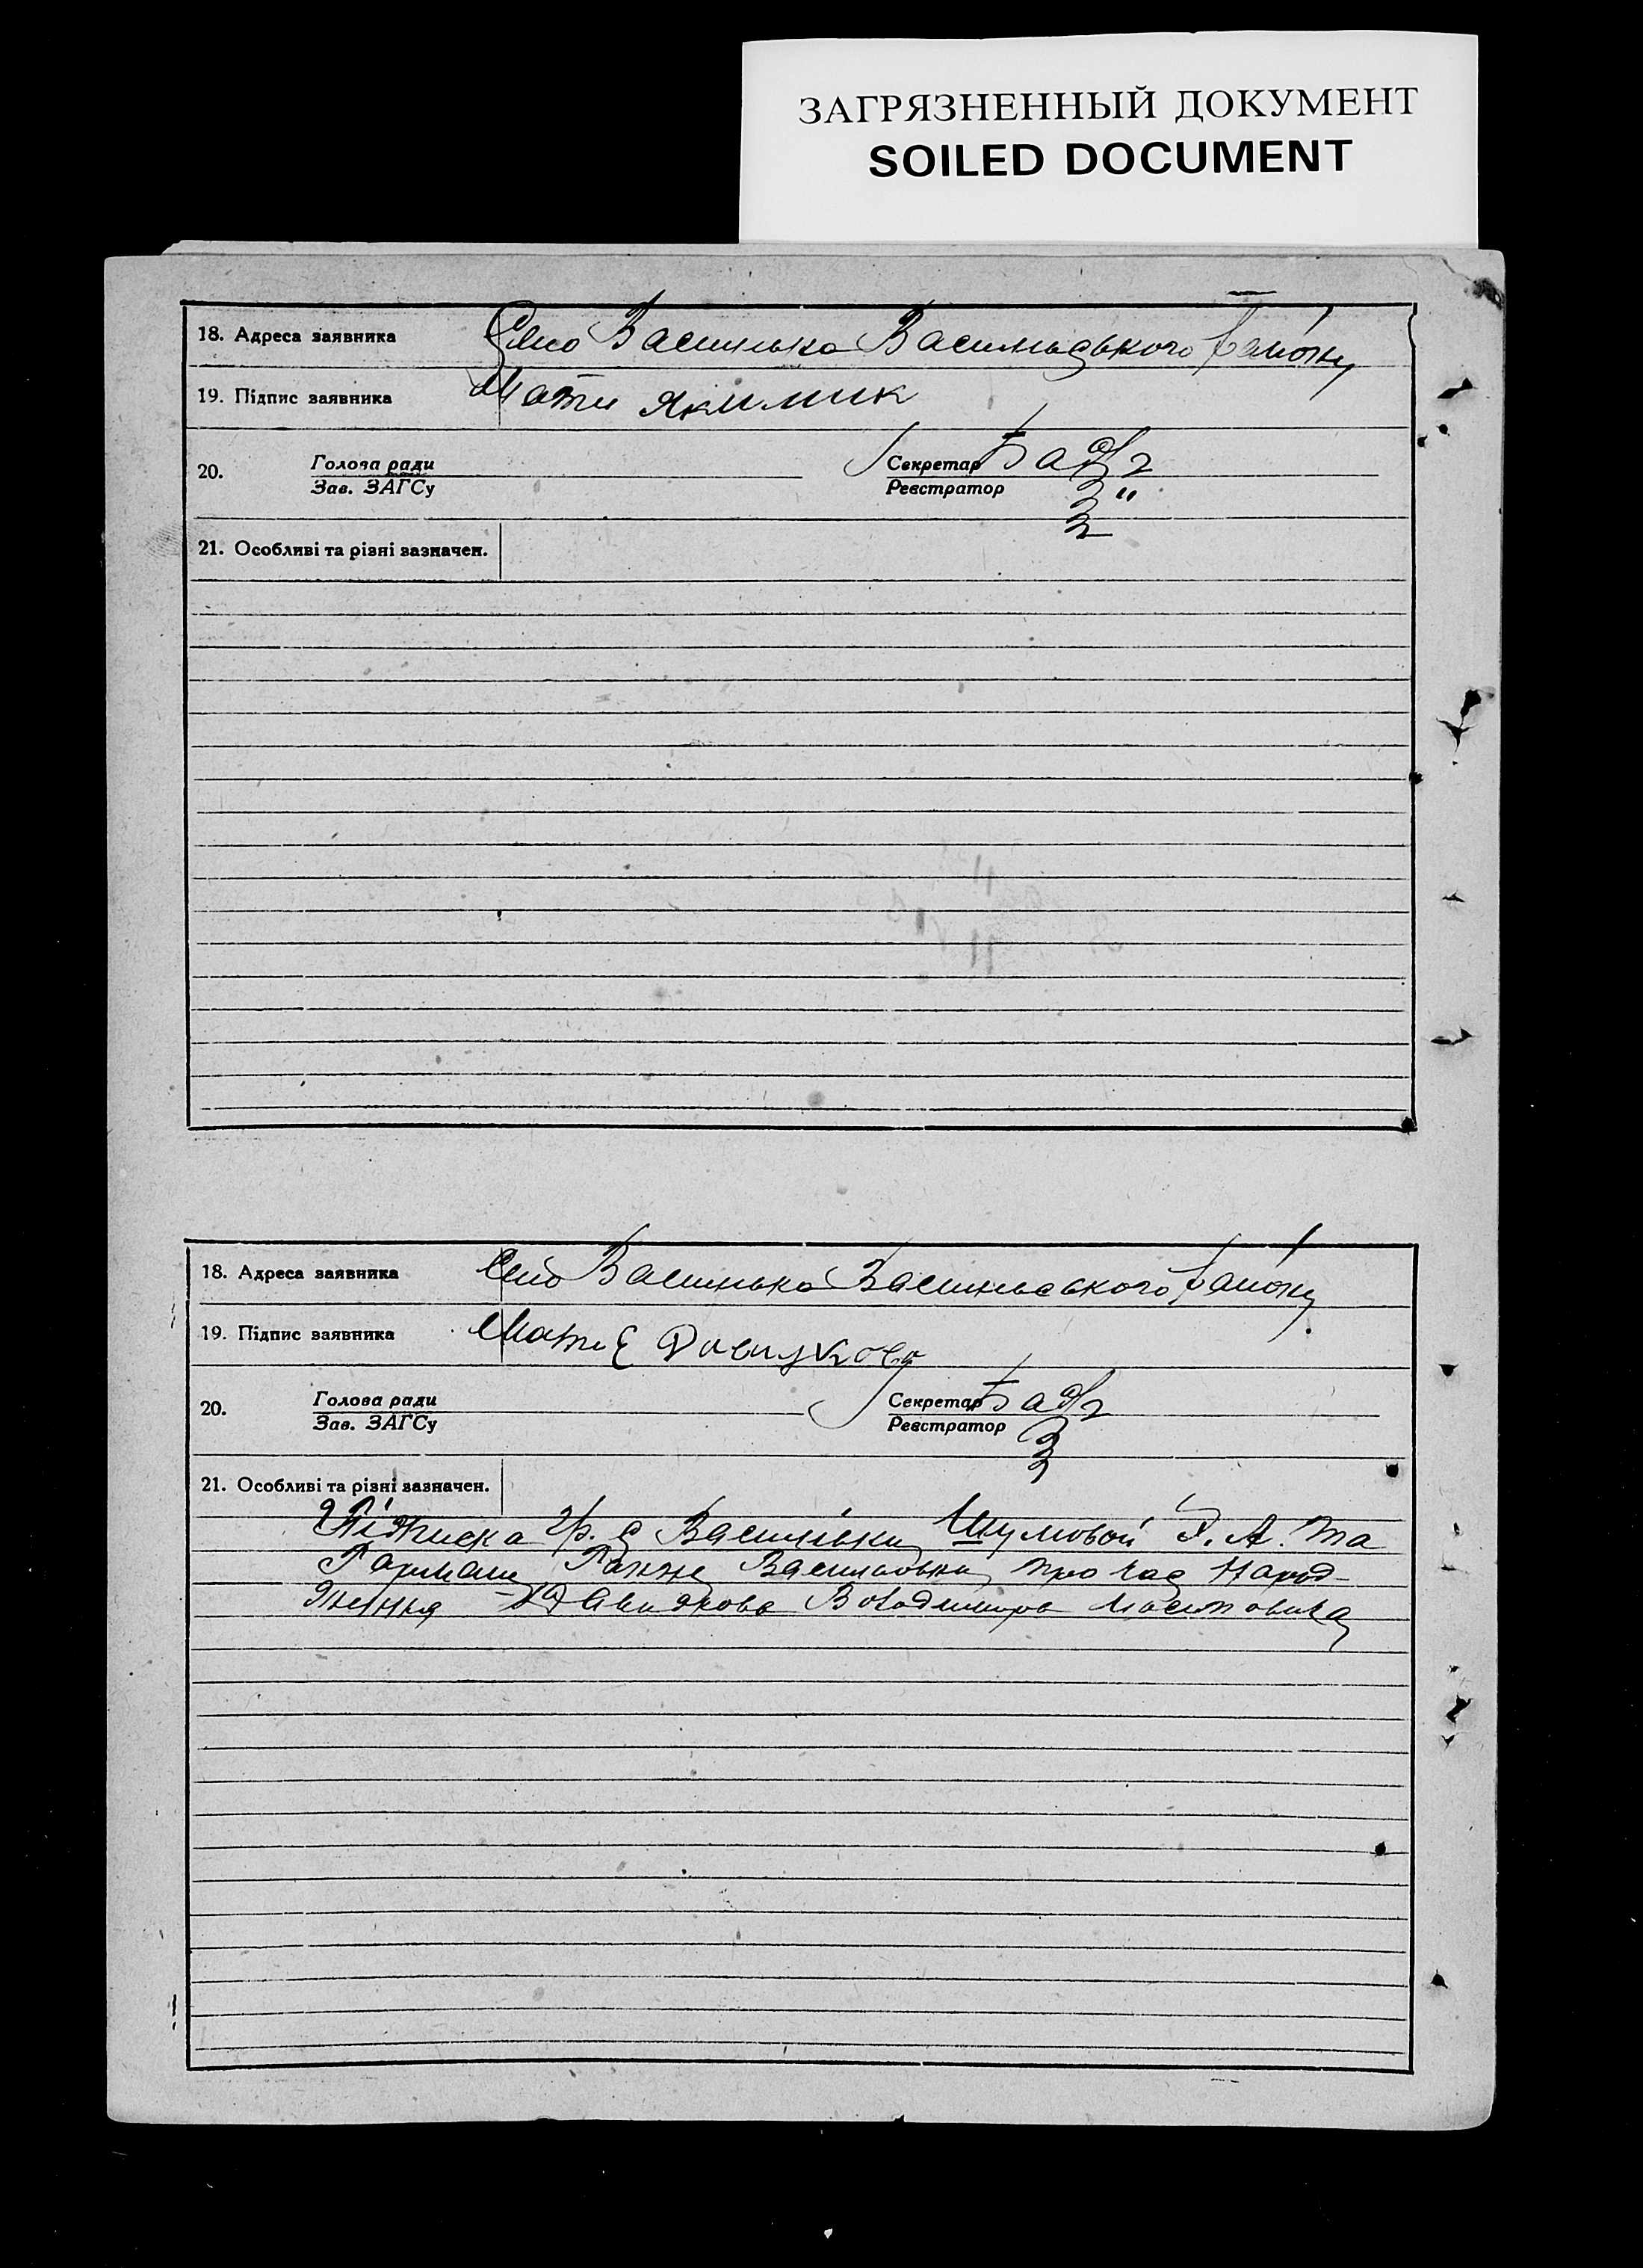 ЗАГРЯЗНЕННЫЙ ДОКУМЕНТ
SOILED DOCUMENT
18. Адреса заявника Село Василівка Васильвського району
19. Підпис заявника Мати Якимик
20. Голова ради
Зав. ЗАГСу
Секретар
Реєстратор
21. Особливі та різні зазначен.
18. Адреса заявника Село Василівка Васильевського району
19. Підпис заявника Мати
20. Голова ради
Зав. ЗАГСу
Секретар
Реєстратор
21. Особливі та різні зазначен.
Підписка гр. с Василівки Шумовой А. та
Василівни про час народ-
ження Володимира